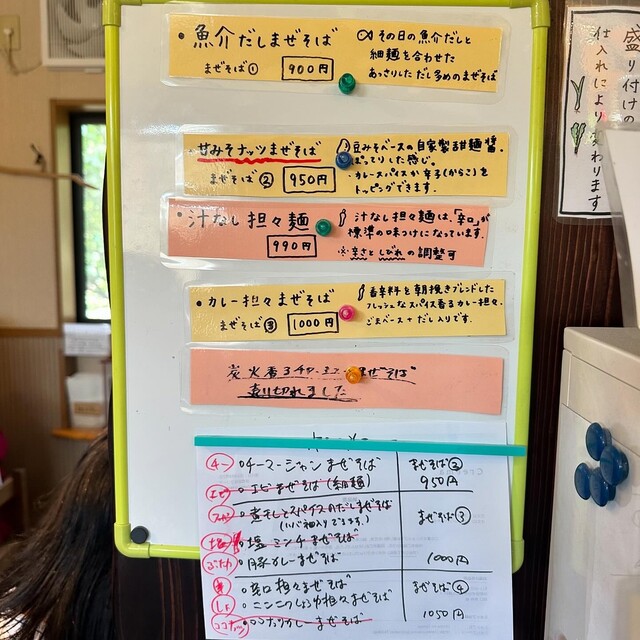 ・魚介だしまぜそば
その日の魚介だしと
細麺を合わせた
あっさりしただし多めのまぜそば
まぜそば① 900円
甘みそナッツまぜそば
豆みそベースの自家製甜麺醤。
ぽってりした感じ。
・カレースパイスか辛子(からこ)を
トッピングできます。
まぜそば② 950円
・汁なし担々麺
汁なし担々麺は、「辛口」が
標準の味つけになっています。
※辛さとしびれの調整可
990円
・カレー担々まぜそば
香辛料を朝挽きブレンドした
フレッシュなスパイス香るカレー担々。
ごまベース+だし入りです。
まぜそば③ 1000円
まぜそば
売り切れました
チーマージャンまぜそば
まぜそば②
950円
エビまぜそば(細麺)
煮干しとスパイスのだしまぜそば
まぜそば③
塩ミンチまぜそば
豚カレーまぜそば
1000円
辛口担々まぜそば
まぜそば④
ニンニクしょうゆ担々まぜそば
1050円
ココナッツカレーまぜそば
盛り付けの
仕入れにより変わります